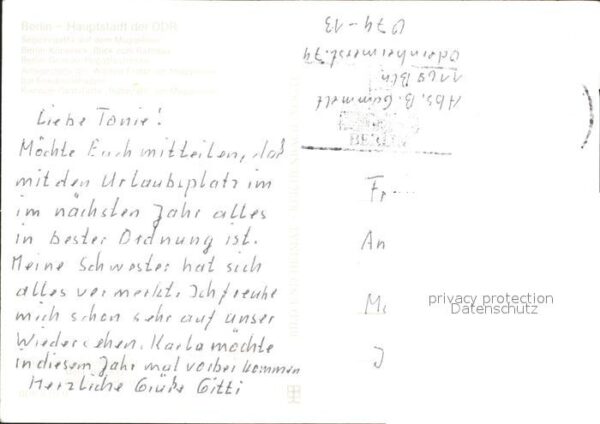 Berlin - Hauptstadt der DDR
Liebe Tonie!
Möchte Euch mitteilen, daß
mit den Urlaubsplatz im
im nächsten Jahr alles
in bester Ordnung ist.
Meine Schwester hat sich
alles vermerkt. Ich freuhe
mich schon sehr auf unser
Wiedersehen. Karla möchte
in diesem Jahr mal vorbei kommen
Herzliche Grüße Gitti
Abs. B. Gammelt
1120 Bln
Odernheimerst. 74
BERLIN
Fr
An
M
J
privacy protection
Datenschutz